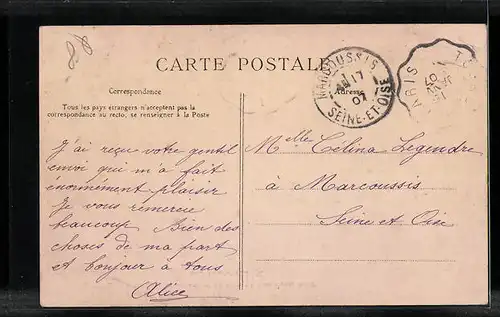 CARTE POSTALE
Correspondance
Tous les pays étrangers n'acceptent pas la
correspondance au recto, se renseigner à la Poste
J'ai reçu votre gentil
envoi qui m'a fait
énormément plaisir
Je vous remercie
beaucoup Bien des
choses de ma part
et bonjour à tous
Alice
Adresse
MARCOUSSIS
17
07
SEINE-ET-OISE
ARIS
Melle Célina Legendre
à Marcoussis
Seine et Oise